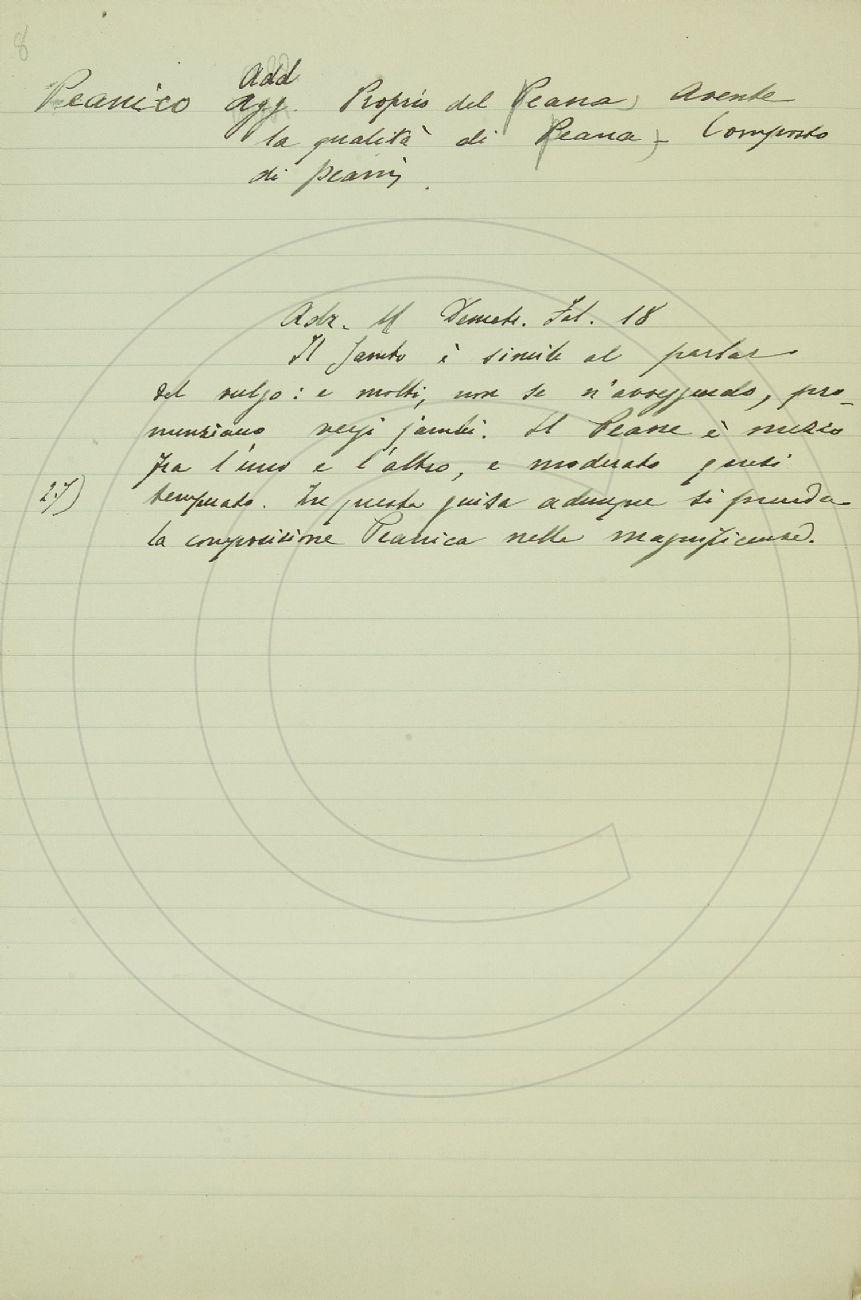 8
Add
Peanico Agg. Proprio del Peana, Avente
la qualità di Peana, Composto
di peani.
Adr. M Demetr. Fal. 18
Il Jambo è simile al parlar
del vulgo: e molti, non se n'avveggendo, pro-
nunziano versi jambi. Il Peane è mezzo
fra l'uno e l'altro, e moderato quasi
27) temperato. In questa guisa adunque si prenda
la composizione Peanica nelle magnificenze.